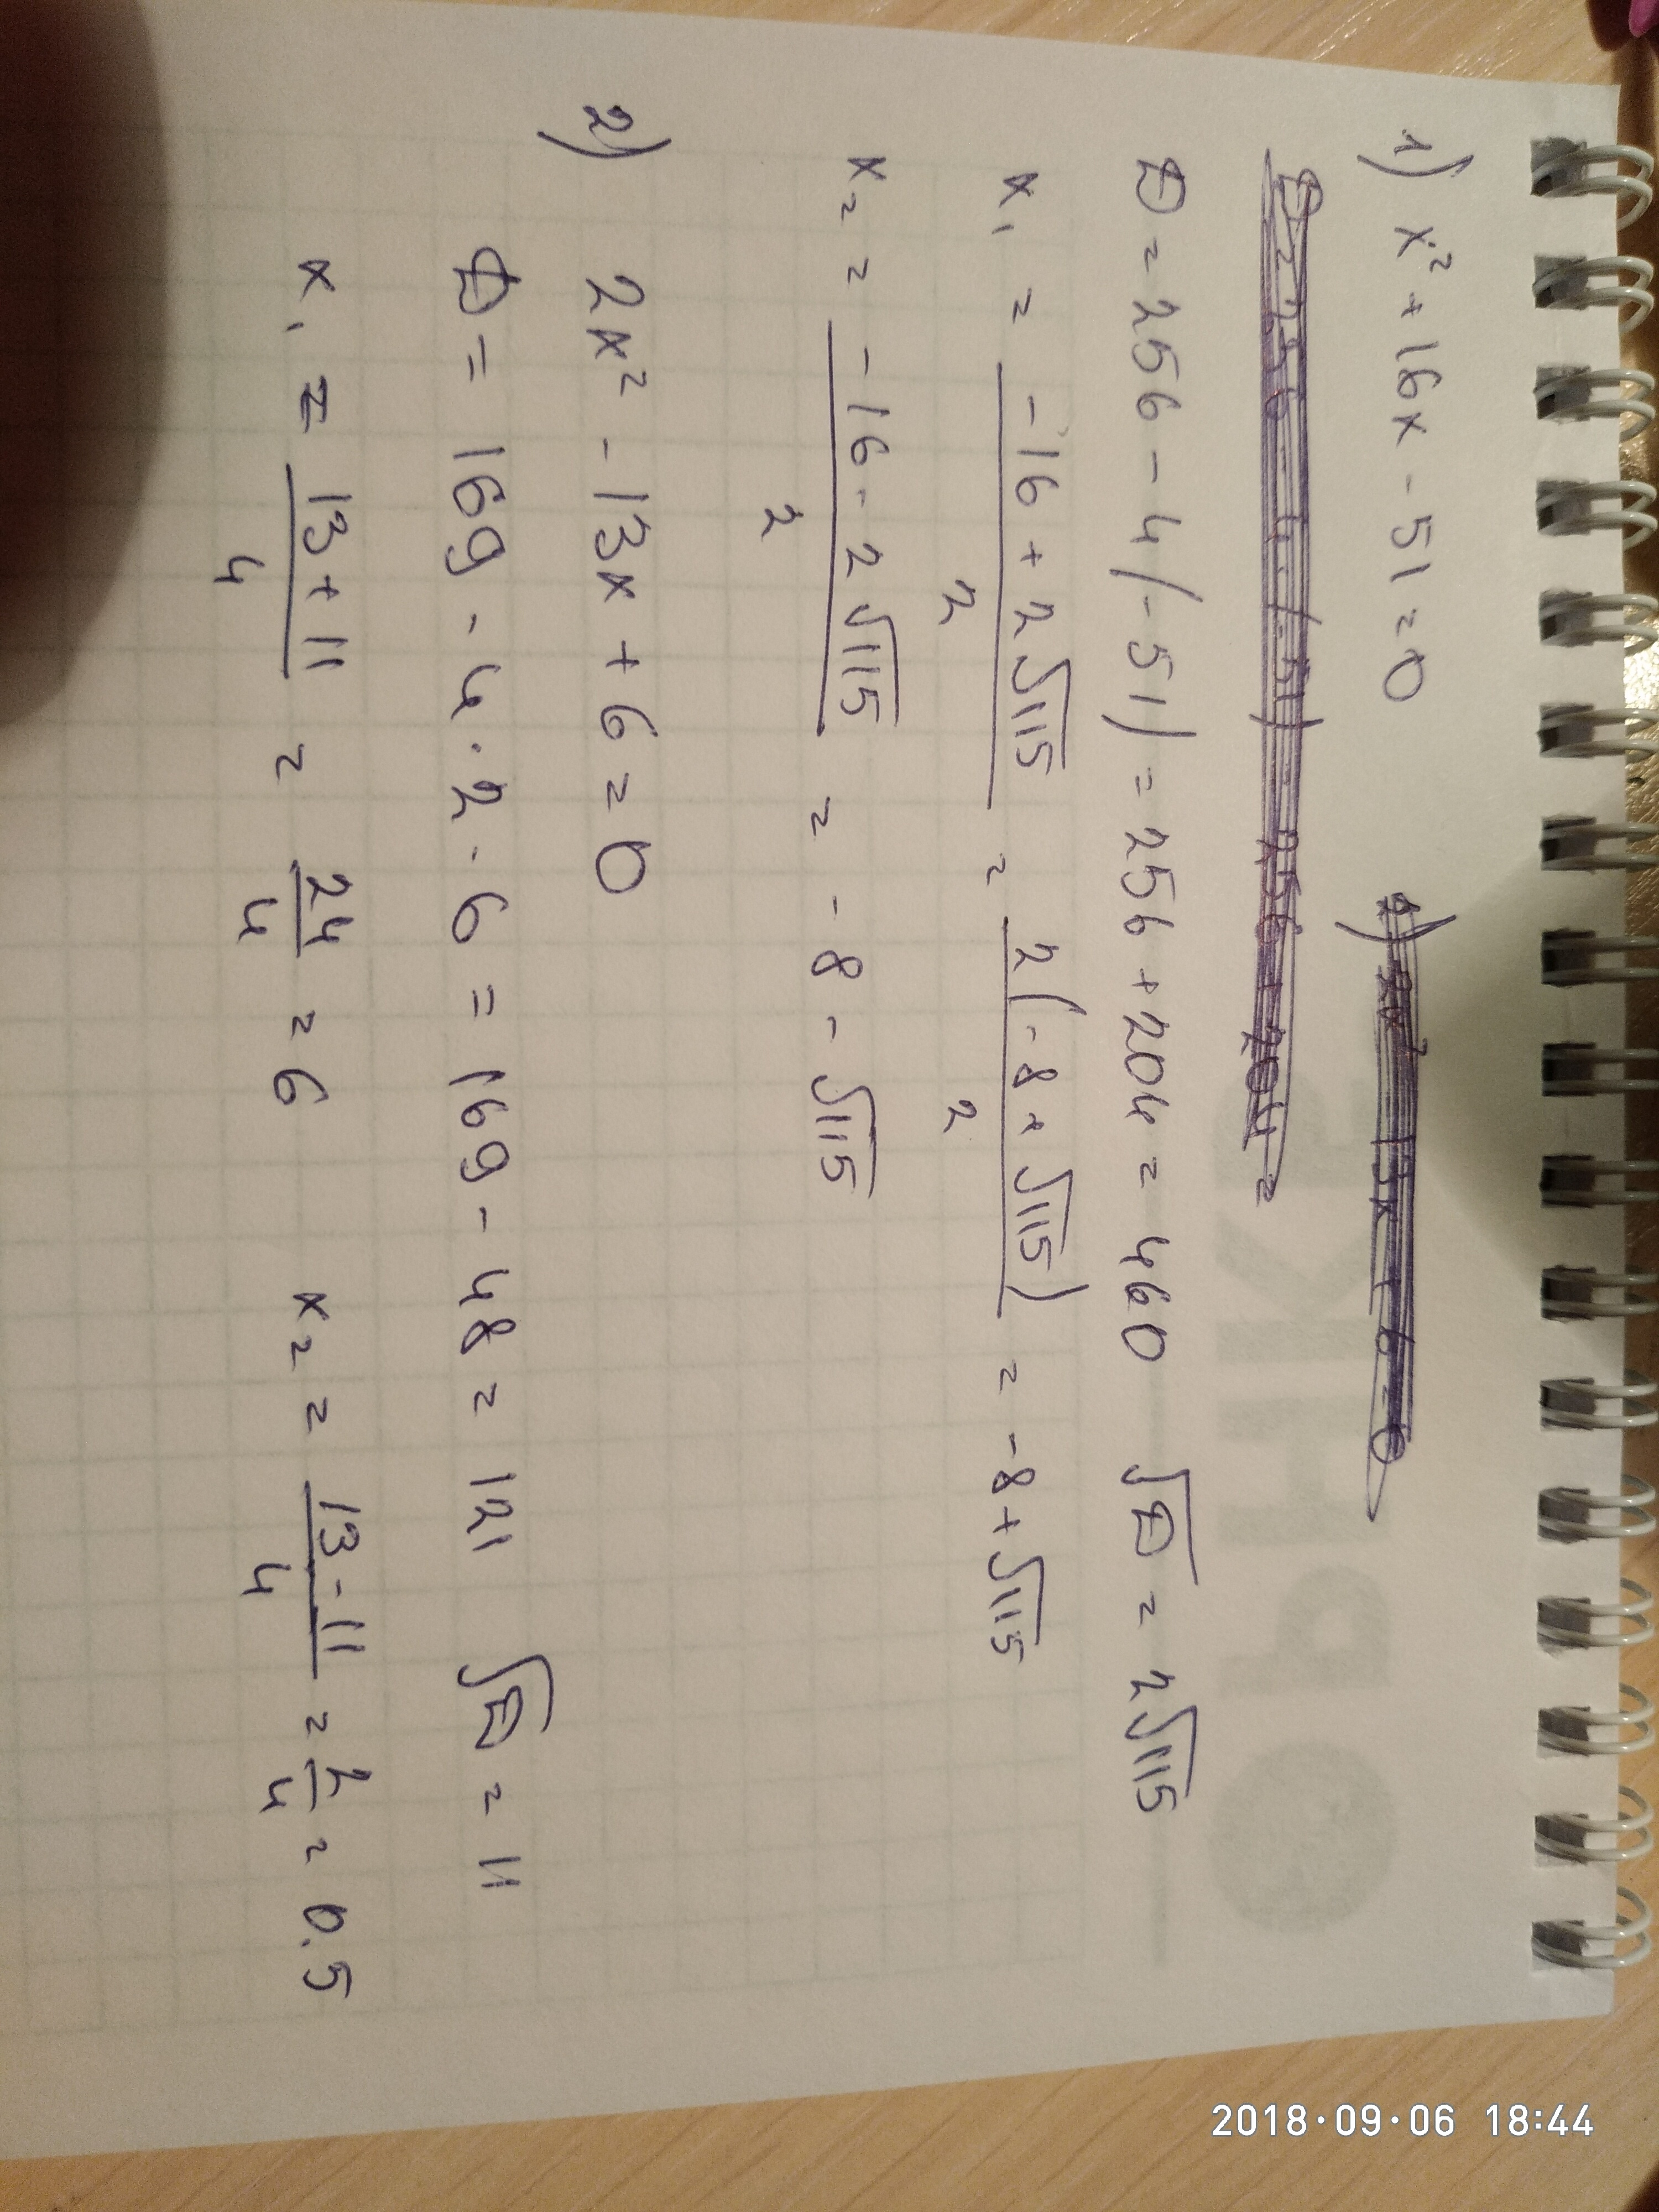 1) x² + 16x - 51 = 0
D = 256 - 4(-51) = 256 + 204 = 460 √D = 2√115
x₁ = (-16 + 2√115)/2 = 2(-8 + √115)/2 = -8 + √115
x₂ = (-16 - 2√115)/2 = -8 - √115
2) 2x² - 13x + 6 = 0
D = 169 - 4 · 2 · 6 = 169 - 48 = 121 √D = 11
x₁ = (13 + 11)/4 = 24/4 = 6 x₂ = (13 - 11)/4 = 2/4 = 0.5
2018·09·06 18:44